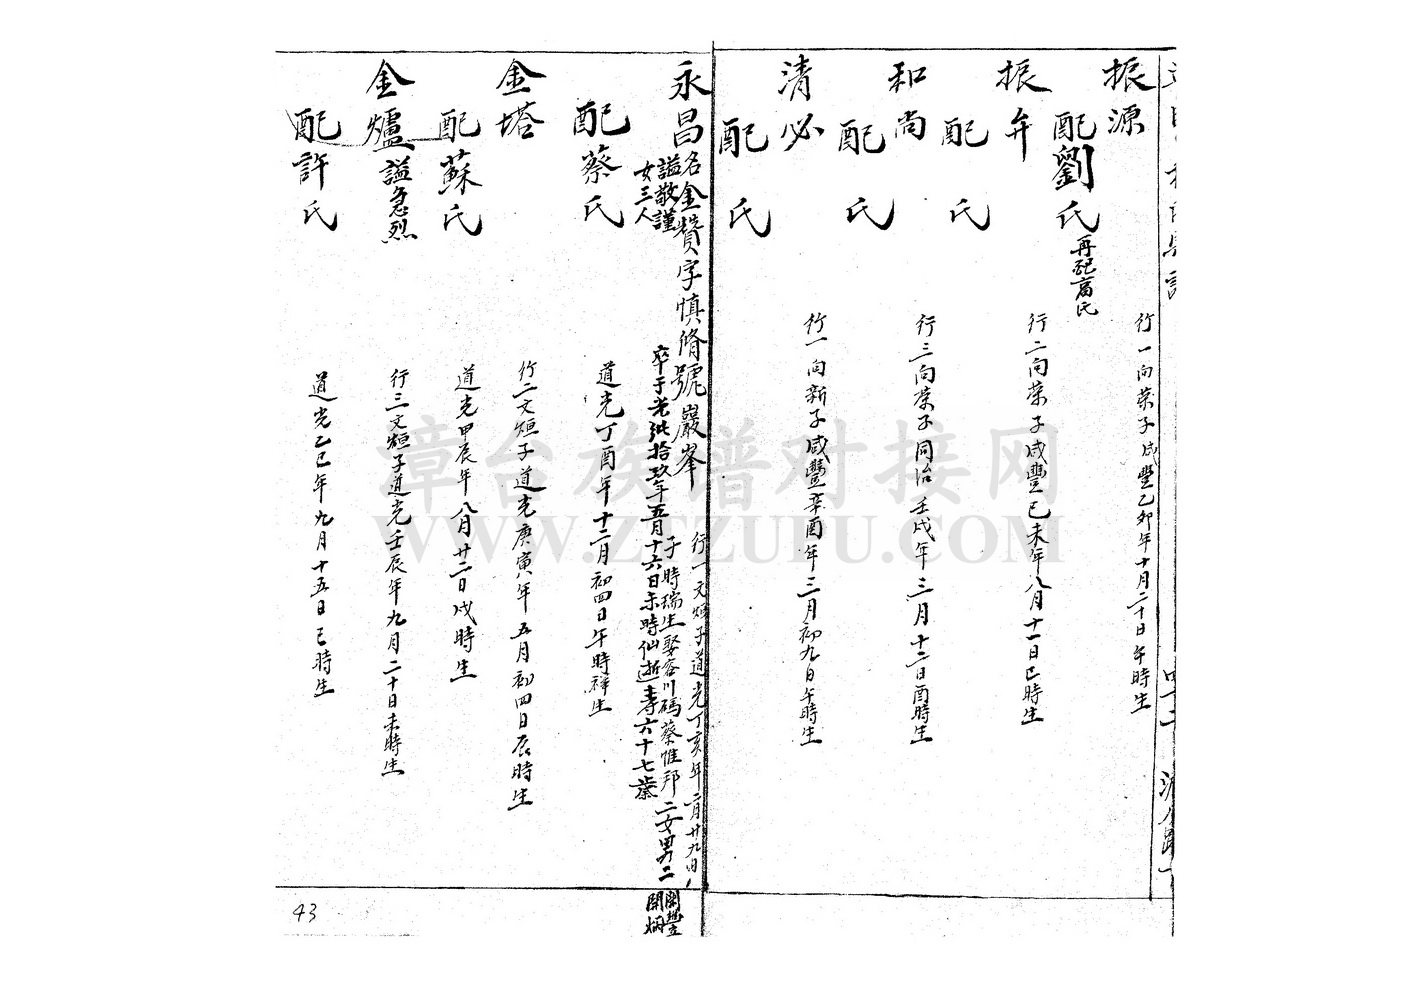 振源
行一向荣子咸豐乙卯年十月二十日午時生
配劉氏 再配高氏
振弁
行二向荣子咸豐己未年八月十一日巳時生
配 氏
和尚
行三向荣子同治壬戌年三月十二日酉時生
配 氏
清必
行一向新子咸豐辛酉年三月初九日午時生
配 氏
永昌 名金贊字慎脩號巖峯
謚敬謹
女三人
行一文烜子道光丁亥年二月廿九日
子時瑞生娶容川碼蔡惟邦二女男二
開
開炳
卒于光緒拾玖年五月十六日未時仙逝壽六十七歲
配蔡氏
道光丁酉年十二月初四日午時祥生
金塔
行二文烜子道光庚寅年五月初四日辰時生
配蘇氏
道光甲辰年八月廿二日戌時生
金爐 謚急烈
行三文烜子道光壬辰年九月二十日未時生
配許氏
道光乙巳年九月十五日巳時生
43
漳台族谱对接网
WWW.ZTZUPU.COM